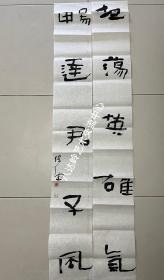 坦蕩英雄氣
暢達君子风